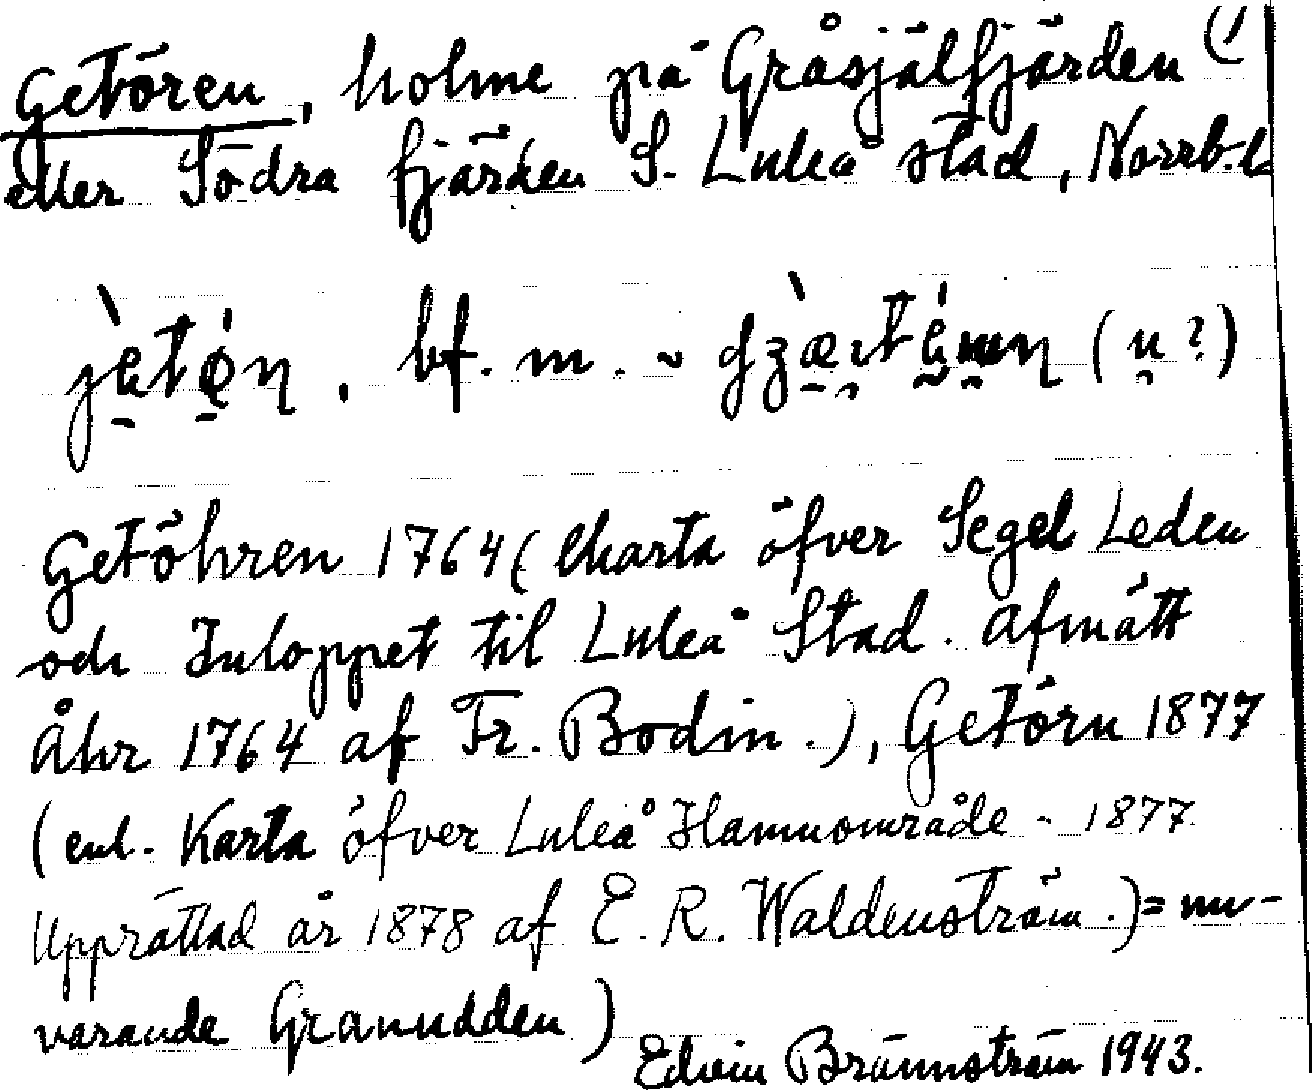 Getören, holme på Gråsjälfjärden (1
eller Södra fjärden S. Luleå stad, Norrb. l.
bf. m. ~ (n?)
Getöhren 1764 (Charta öfver Segel Leden
och Inloppet til Luleå Stad. Afmätt
Åhr 1764 af Fr. Bodin.), Getörn 1877
(enl. Karta öfver Luleå Hamnområde - 1877
Upprättad år 1878 af E. R. Waldenström.) = nu-
varande Granudden)
Edvin Brännström 1943.